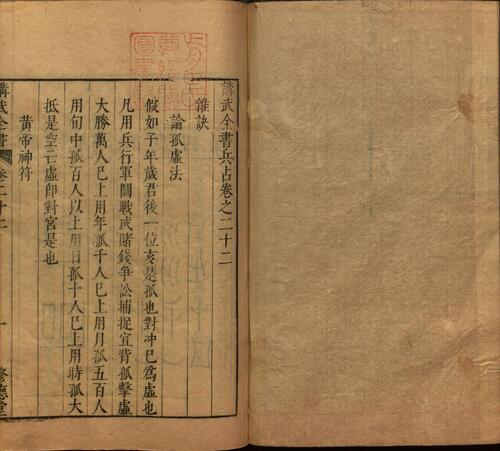 講武全書兵占卷之二十二
雜訣
論孤虛法
假如子年歲君後一位亥是孤也對冲巳爲虛也
凡用兵行軍鬪戰或賭錢爭訟捕捉宜背孤擊虛
大勝萬人已上用年孤千人已上用月孤五百人
用旬中孤百人以上用日孤十人已上用時孤大
抵是空亡虛卽對宮是也
黃帝神符
講武全書 卷二十二 一 修德堂